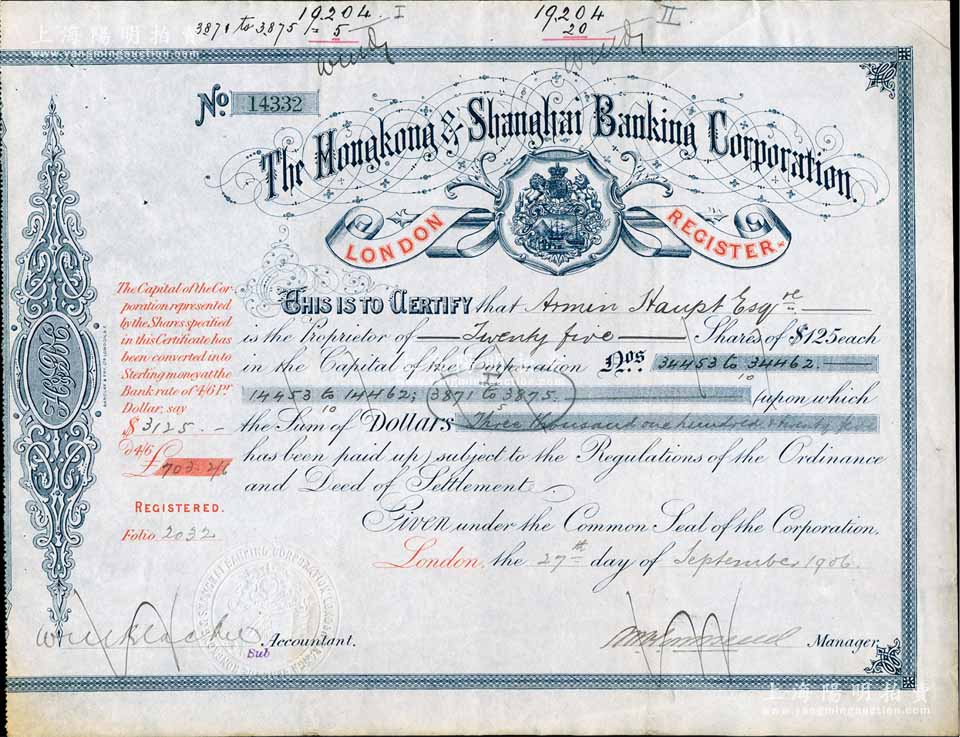 19204 I 19204 II
3871 to 3875 = 5 20
上海陽明拍賣
www.yangmingauction.com
No. 14332
The Hongkong & Shanghai Banking Corporation.
LONDON REGISTER.
The Capital of the Cor
poration represented
by the Shares specified
in this Certificate has
been converted into
Sterling money at the
Bank rate of 4/6 Pr.
Dollar, say
$ 3125.-
@ 4/6
£ 703. 2/6
REGISTERED.
Folio 2032
THIS IS TO CERTIFY that Armin Haupt Esqre
is the Proprietor of Twenty five Shares of $125 each
in the Capital of the Corporation Nos. 34453 to 34462.
10
14453 to 14462; 3871 to 3875. (upon which
10 5
the Sum of Dollars Three thousand one hundred & twenty five
has been paid up) subject to the Regulations of the Ordinance
and Deed of Settlement.
Given under the Common Seal of the Corporation.
London, the 27th day of September 1906.
Sub Accountant. Manager.
上海陽明拍賣
www.yangmingauction.com